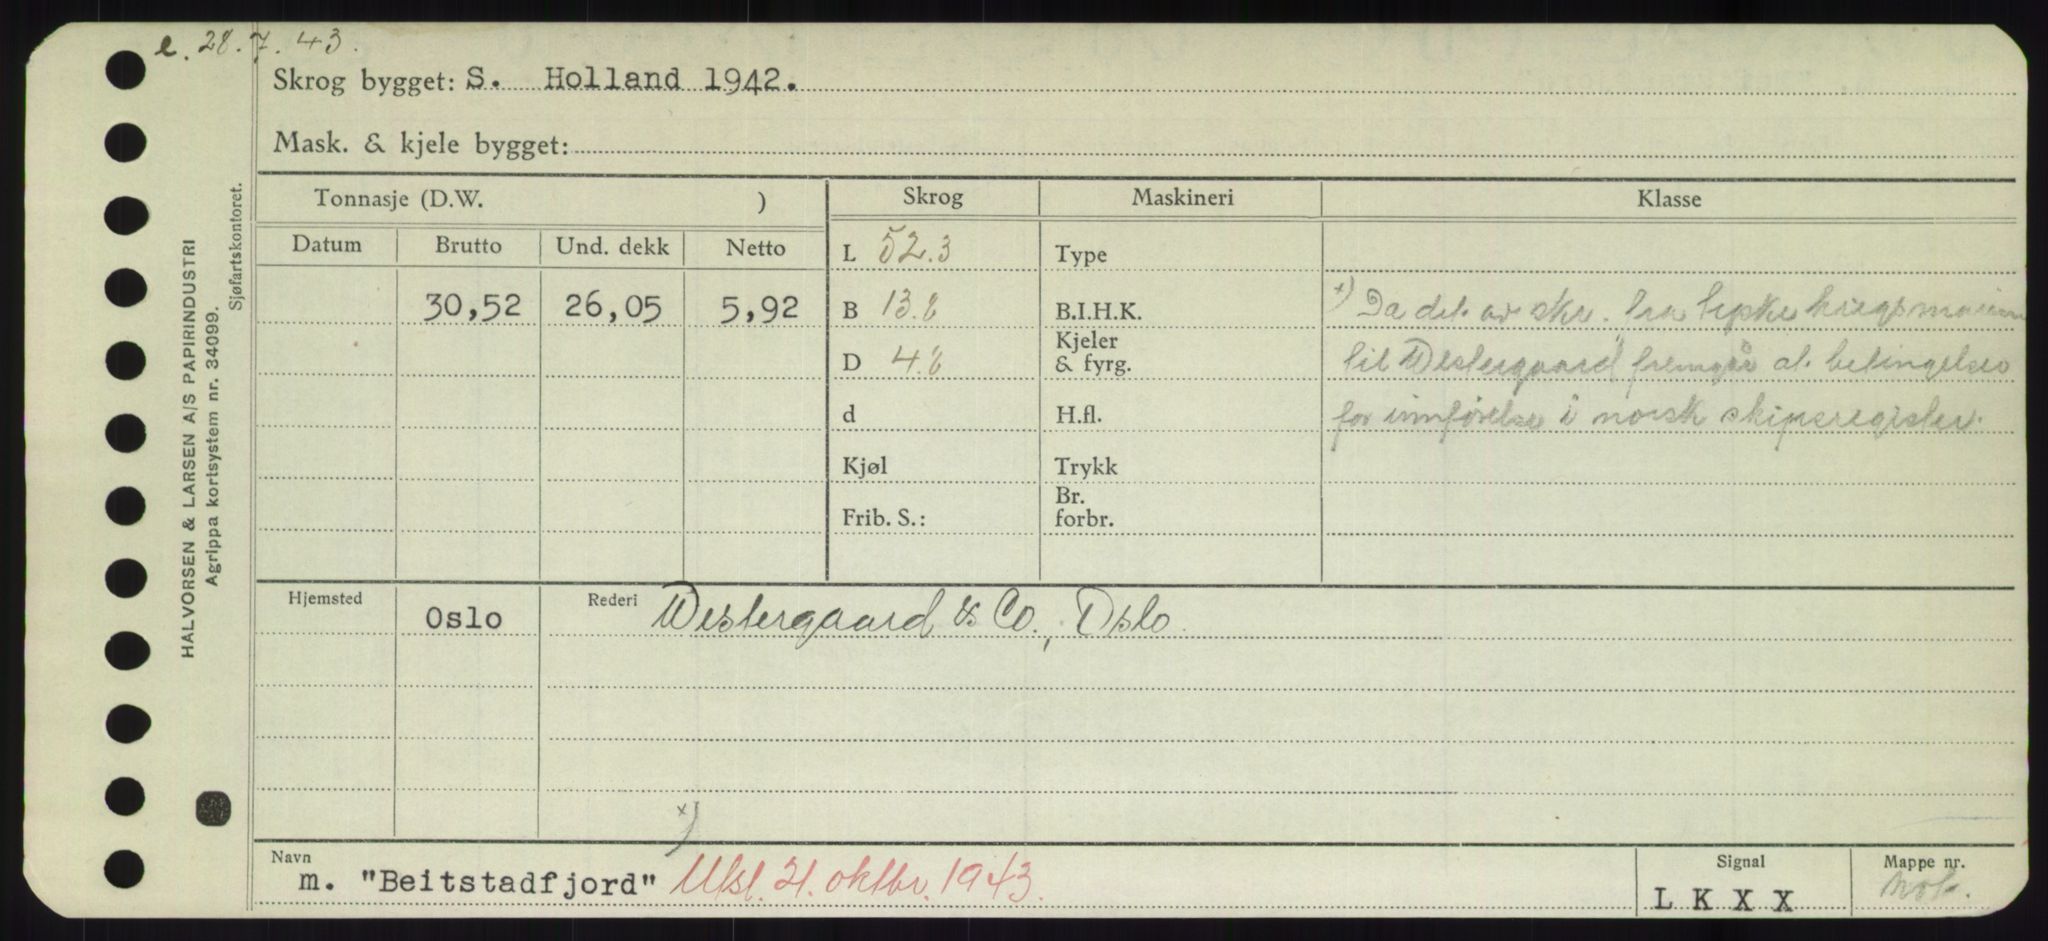 e. 28.7.43.
Skrog bygget: S. Holland 1942.
Mask. & kjele bygget:
Tonnasje (D.W. ) Skrog Maskineri Klasse
Datum Brutto Und. dekk Netto
L 52.3 Type
30,52 26,05 5,92 B 13.8 B.I.H.K.
x) Da det av skr. fra tyske
Kjeler
D 4.8 & fyrg.
til Westergaard fremgår at betingelsen
d H.fl.
for innførelse i norsk skipsregister.
Kjøl Trykk
Br.
Frib. S.: forbr.
Hjemsted Oslo Rederi Westergaard & Co., Oslo
x)
Navn Signal Mappe nr.
m. "Beitstadfjord" Utsl. 21. oktbr. 1943. L K X X
HALVORSEN & LARSEN A/S PAPIRINDUSTRI
Agrippa kortsystem nr. 34099.
Sjøfartskontoret.